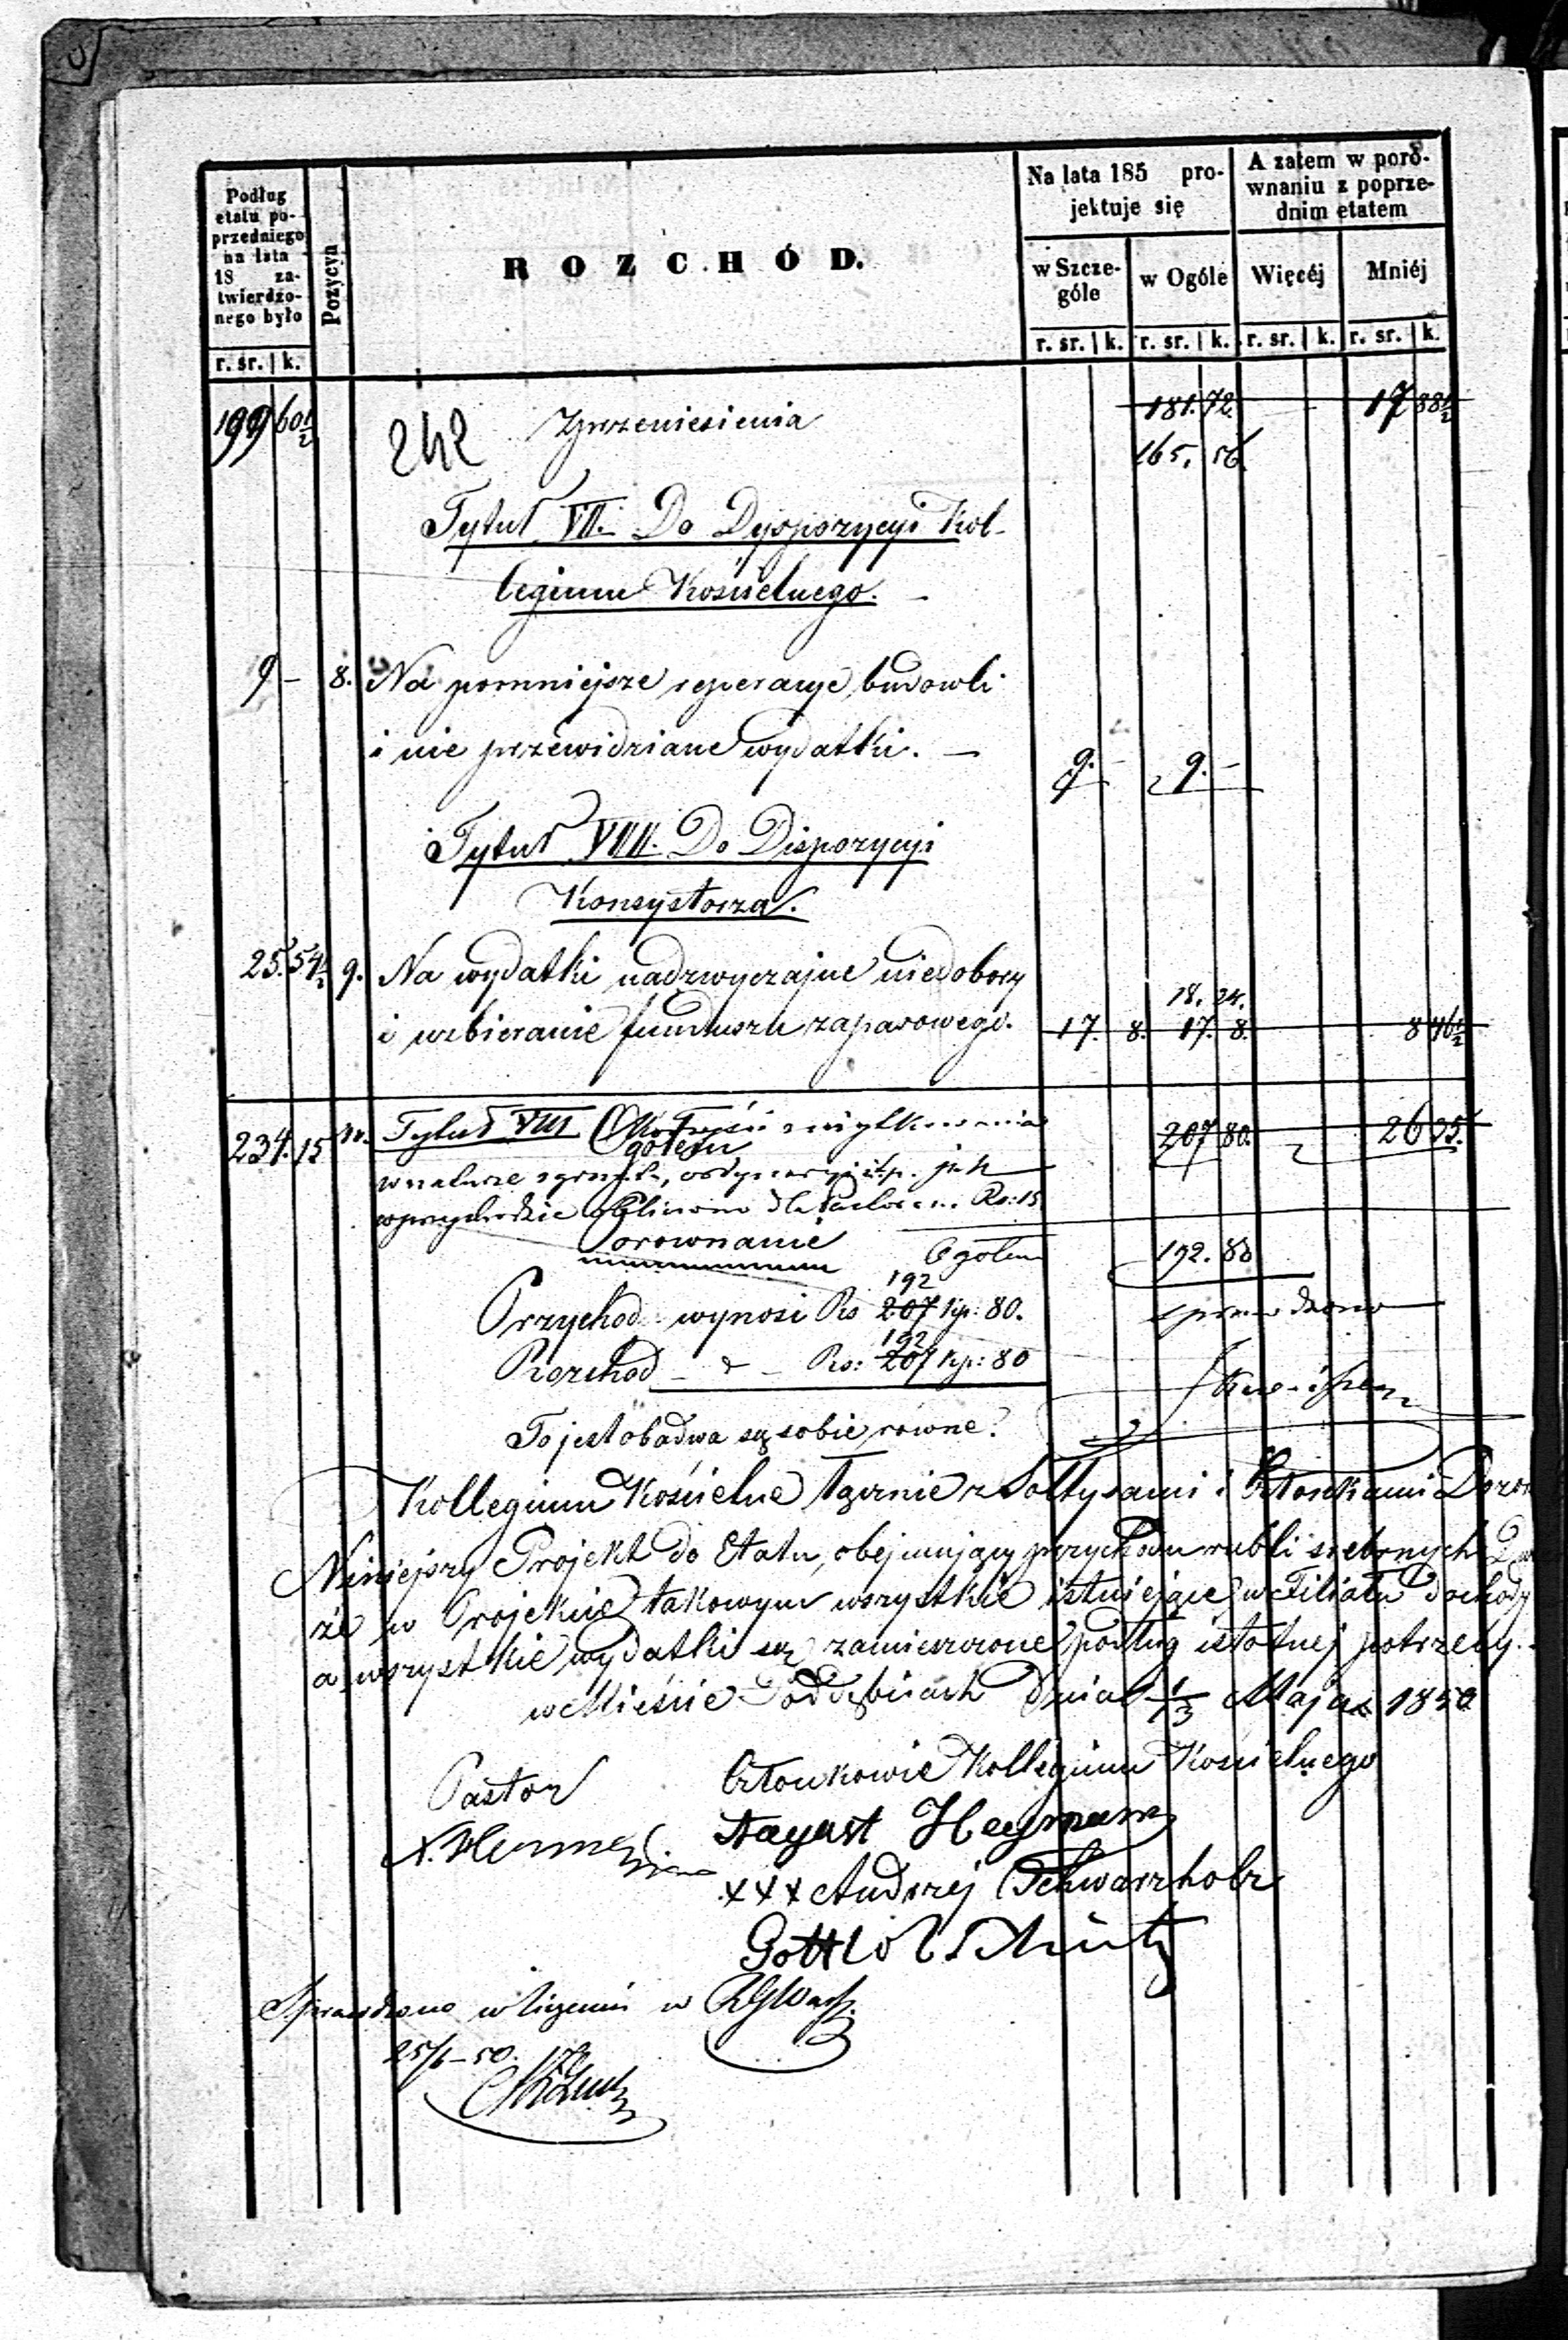 Podług
etatu po-
przedniego
na lata
18 za-
twierdzo-
nego było
r. sr. k.
Pozycya
ROZCHÓD.
Na lata 185 pro-
jektuje się
w Szcze-
góle
w Ogóle
r. sr. k. r. sr. k.
A zatem w poró-
wnaniu z poprze-
dnim etatem
Więcéj Mniéj
r. sr. k. r. sr. k.
199 60½ Z przeniesienia 181. 72 17 88½
242 165. 56
Tytuł VII. Do Dyspozycyi Kol-
legium Kościelnego. –
9 – 8. Na pomniejsze reperacye budowli
i nie przewidziane wydatki. – 9. – 9. –
Tytuł VIII. Do Dispozycyi
Konsystorza.
25. 54½ 9. Na wydatki nadzwyczajne niedobory
18. 24.
i uzbieranie funduszu zapasowego. 17. 8. 17. 8. 8 46½
234. 15 Tytuł VIII Ogółem 207 80. 26 35.
w naturze z gruntu, ordynaryi itp. jak
w przychodzie dla Pastora Rs: 15
Porownanie Ogółem 192. 80
192
Przychod wynosi Rs 207 kp: 80.
sprawdzono
192
Rozchod – " – Rs: 207 kp: 80
To jest obadwa są sobie rowne.
Kollegium Kościelne łącznie z Sołtysami i Członkami Dozoru
Niniejszy Projekt do Etatu, obejmujący przychodu rubli srebrnych
że w Projekcie takowym wszystkie istniejące w Filiale dochody
a wszystkie wydatki są zamieszczone podług istotnej potrzeby. –
w Mieście Poddębicach Dnia 1/13 Maja 1850
Pastor Członkowie Kollegium Kościelnego
August Heymann
xxx Andrzej Schwarzholz
Gottlob Schultz
Sprawdzono w
25/ – 50.